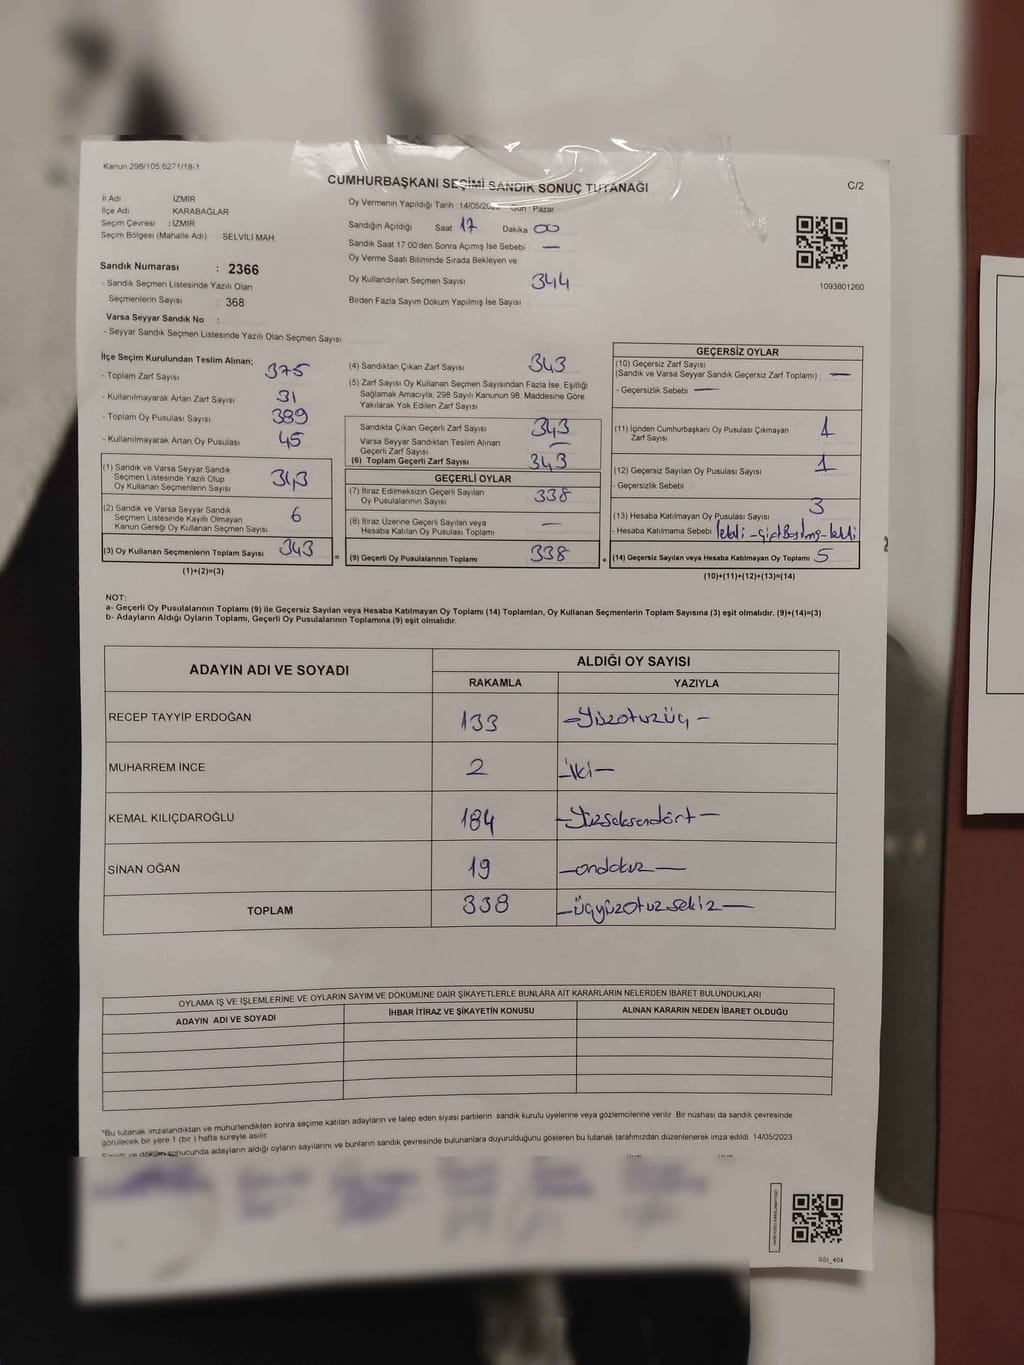 Kanun 298/105 6271/18-1
CUMHURBAŞKANI SEÇİMİ SANDIK SONUÇ TUTANAĞI
C/2
İl Adı İZMİR
İlçe Adı KARABAĞLAR
Seçim Çevresi : İZMİR
Seçim Bölgesi (Mahalle Adı) SELVİLİ MAH.
Sandık Numarası : 2366
- Sandık Seçmen Listesinde Yazılı Olan
Seçmenlerin Sayısı : 368
Varsa Seyyar Sandık No :
- Seyyar Sandık Seçmen Listesinde Yazılı Olan Seçmen Sayısı
Oy Vermenin Yapıldığı Tarih 14/05/ Gün : Pazar
Sandığın Açıldığı Saat 17 Dakika 00
Sandık Saat 17.00'den Sonra Açımış İse Sebebi —
Oy Verme Saati Bitiminde Sırada Bekleyen ve
Oy Kullandırılan Seçmen Sayısı 344
Birden Fazla Sayım Döküm Yapılmış İse Sayısı
1093801260
İlçe Seçim Kurulundan Teslim Alınan;
- Toplam Zarf Sayısı 375
- Kullanılmayarak Artan Zarf Sayısı 31
- Toplam Oy Pusulası Sayısı 389
- Kullanılmayarak Artan Oy Pusulası 45
(1) Sandık ve Varsa Seyyar Sandık
Seçmen Listesinde Yazılı Olup
Oy Kullanan Seçmenlerin Sayısı 343
(2) Sandık ve Varsa Seyyar Sandık
Seçmen Listesinde Kayıtlı Olmayan
Kanun Gereği Oy Kullanan Seçmen Sayısı 6
(3) Oy Kullanan Seçmenlerin Toplam Sayısı 343
(1)+(2)=(3)
(4) Sandıktan Çıkan Zarf Sayısı 343
(5) Zarf Sayısı Oy Kullanan Seçmen Sayısından Fazla İse, Eşitliği
Sağlamak Amacıyla, 298 Sayılı Kanunun 98. Maddesine Göre
Yakılarak Yok Edilen Zarf Sayısı
Sandıkta Çıkan Geçerli Zarf Sayısı 343
Varsa Seyyar Sandıktan Teslim Alınan
Geçerli Zarf Sayısı —
(6) Toplam Geçerli Zarf Sayısı 343
GEÇERLİ OYLAR
(7) İtiraz Edilmeksizin Geçerli Sayılan
Oy Pusulalarının Sayısı 338
(8) İtiraz Üzerine Geçerli Sayılan veya
Hesaba Katılan Oy Pusulası Toplamı —
= (9) Geçerli Oy Pusulalarının Toplamı 338 +
GEÇERSİZ OYLAR
(10) Geçersiz Zarf Sayısı
(Sandık ve Varsa Seyyar Sandık Geçersiz Zarf Toplamı) —
- Geçersizlik Sebebi —
(11) İçinden Cumhurbaşkanı Oy Pusulası Çıkmayan
Zarf Sayısı 1
(12) Geçersiz Sayılan Oy Pusulası Sayısı 1
- Geçersizlik Sebebi
(13) Hesaba Katılmayan Oy Pusulası Sayısı 3
- Hesaba Katılmama Sebebi
(14) Geçersiz Sayılan veya Hesaba Katılmayan Oy Toplamı 5
(10)+(11)+(12)+(13)=(14)
NOT:
a- Geçerli Oy Pusulalarının Toplamı (9) ile Geçersiz Sayılan veya Hesaba Katılmayan Oy Toplamı (14) Toplamları, Oy Kullanan Seçmenlerin Toplam Sayısına (3) eşit olmalıdır. (9)+(14)=(3)
b- Adayların Aldığı Oyların Toplamı, Geçerli Oy Pusulalarının Toplamına (9) eşit olmalıdır.
ADAYIN ADI VE SOYADI ALDIĞI OY SAYISI
RAKAMLA YAZIYLA
RECEP TAYYİP ERDOĞAN 133 –Yüzotuzüç–
MUHARREM İNCE 2 –İki–
KEMAL KILIÇDAROĞLU 184 –Yüzseksendört–
SİNAN OĞAN 19 –ondokuz–
TOPLAM 338 –üçyüzotuzsekiz–
OYLAMA İŞ VE İŞLEMLERİNE VE OYLARIN SAYIM VE DÖKÜMÜNE DAİR ŞİKAYETLERLE BUNLARA AİT KARARLARIN NELERDEN İBARET BULUNDUKLARI
ADAYIN ADI VE SOYADI İHBAR İTİRAZ VE ŞİKAYETİN KONUSU ALINAN KARARIN NEDEN İBARET OLDUĞU
*Bu tutanak imzalandıktan ve mühürlendikten sonra seçime katılan adayların ve talep eden siyasi partilerin sandık kurulu üyelerine veya gözlemcilerine verilir. Bir nüshası da sandık çevresinde
görülecek bir yere 1 (bir ) hafta süreyle asılır.
ve döküm sonucunda adayların aldığı oyların sayılarını ve bunların sandık çevresinde bulunanlara duyurulduğunu gösteren bu tutanak tarafımızdan düzenlenerek imza edildi. 14/05/2023
SSİ_404